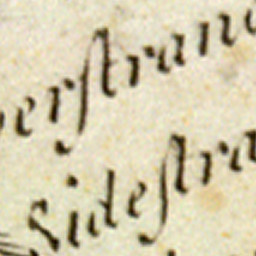 erſtran
sideſtra